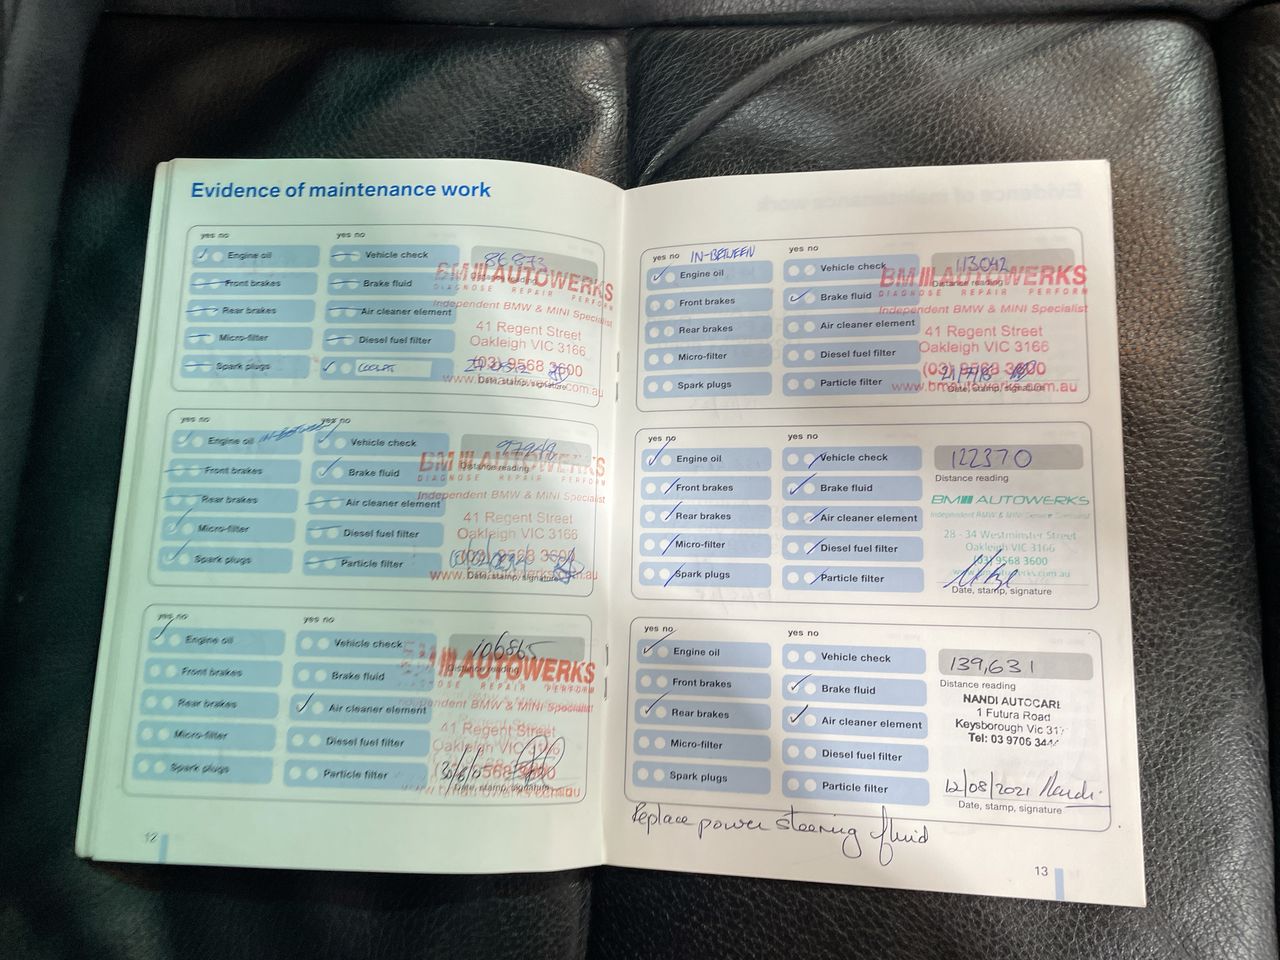 Evidence of maintenance work
yes no
yes no
Engine oil
Vehicle check
86873
Front brakes
Brake fluid
Distance reading
Rear brakes
Air cleaner element
Micro-filter
Diesel fuel filter
Spark plugs
BM AUTOWERKS
DIAGNOSE REPAIR PERFORM
Independent BMW & MINI Specialist
41 Regent Street
Oakleigh VIC 3166
(03) 9568 3600
www.bmautowerks.com.au
Date, stamp, signature
yes no
yes no
Engine oil IN-BETWEEN
Vehicle check
Front brakes
Brake fluid
Distance reading
Rear brakes
Air cleaner element
Micro-filter
Diesel fuel filter
Spark plugs
Particle filter
BM AUTOWERKS
DIAGNOSE REPAIR PERFORM
Independent BMW & MINI Specialist
41 Regent Street
Oakleigh VIC 3166
(03) 9568 3600
Date, stamp, signature
yes no
yes no
Engine oil
Vehicle check
106865
Front brakes
Brake fluid
Distance reading
Rear brakes
Air cleaner element
Micro-filter
Diesel fuel filter
Spark plugs
Particle filter
BM AUTOWERKS
DIAGNOSE REPAIR PERFORM
Independent BMW & MINI Specialist
41 Regent Street
Oakleigh VIC 3166
Date, stamp, signature
12
yes no IN-BETWEEN
yes no
Engine oil
Vehicle check
113042
Front brakes
Brake fluid
Distance reading
Rear brakes
Air cleaner element
Micro-filter
Diesel fuel filter
Spark plugs
Particle filter
BM AUTOWERKS
DIAGNOSE REPAIR PERFORM
Independent BMW & MINI Specialist
41 Regent Street
Oakleigh VIC 3166
(03) 9568 3600
www.bmautowerks.com.au
Date, stamp, signature
yes no
yes no
Engine oil
Vehicle check
122370
Front brakes
Brake fluid
Distance reading
Rear brakes
Air cleaner element
Micro-filter
Diesel fuel filter
Spark plugs
Particle filter
BM AUTOWERKS
Independent BMW & MINI Service Specialist
28 - 34 Westminster Street
Oakleigh VIC 3166
(03) 9568 3600
Date, stamp, signature
yes no
yes no
Engine oil
Vehicle check
139,631
Front brakes
Brake fluid
Distance reading
Rear brakes
Air cleaner element
Micro-filter
Diesel fuel filter
Spark plugs
Particle filter
NANDI AUTOCARE
1 Futura Road
Keysborough Vic
Tel: 03 9706
12/08/2021 Nandi
Date, stamp, signature
Replace power steering fluid
13